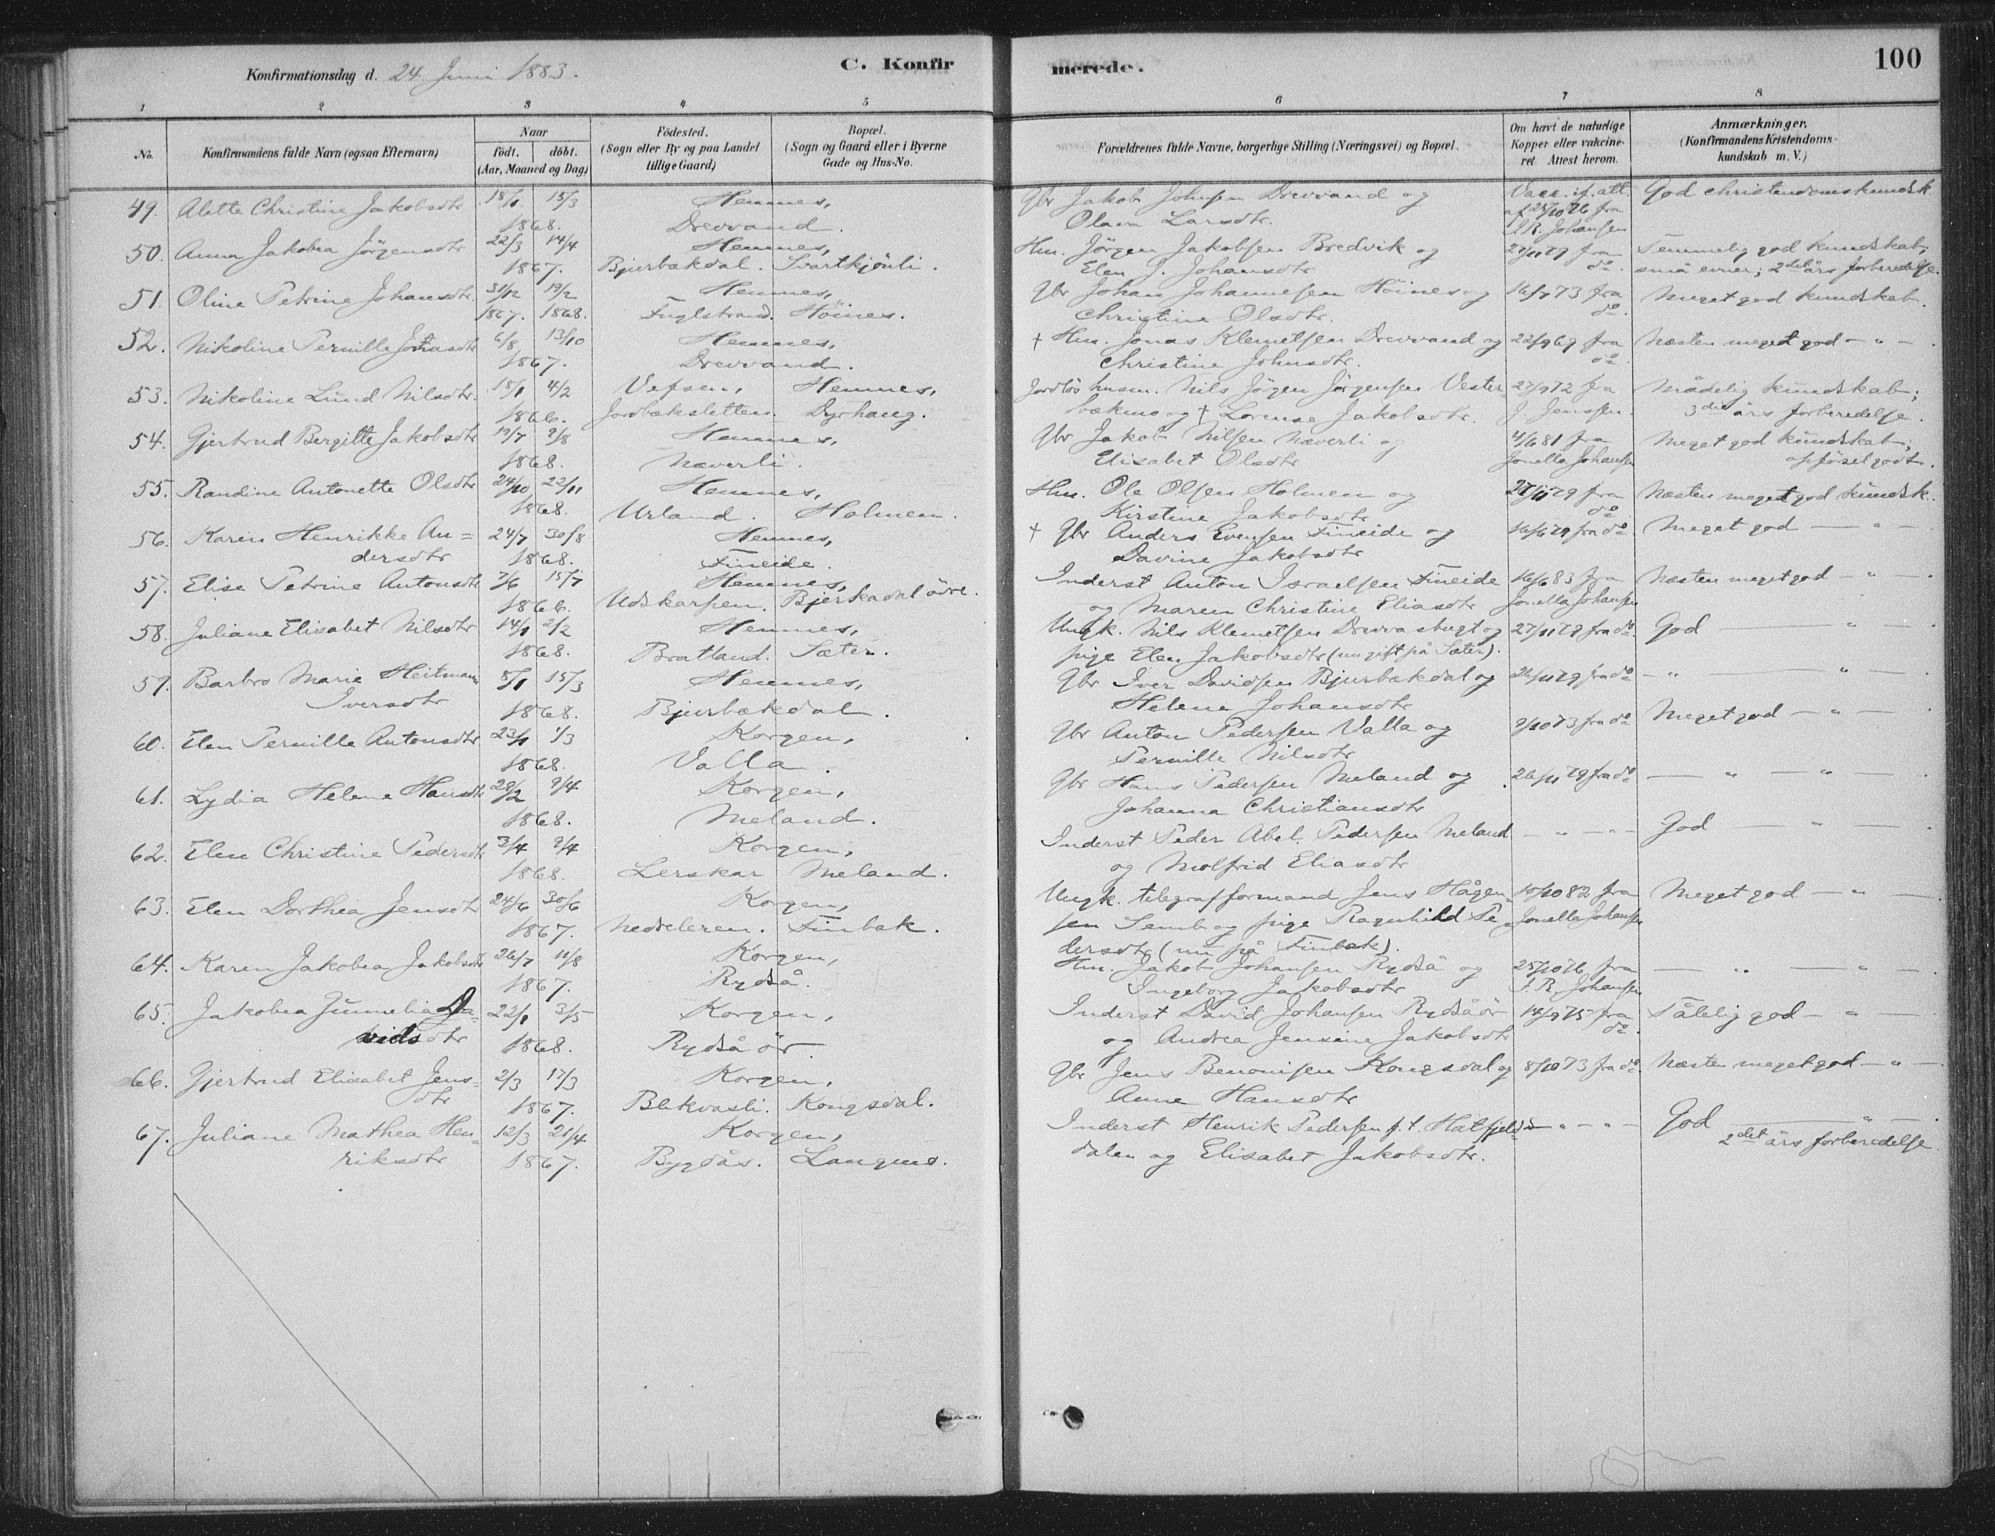 Konfirmationsdag d. 24 Juni 1883.
C. Konfirmerede.
100
1 2 3 4 5 6 7 8
No.
Konfirmandens fulde Navn (ogsaa Efternavn)
Naar
födt. döbt.
(Aar, Maaned og Dag)
Födested.
(Sogn eller By og paa Landet
tillige Gaard)
Bopæl.
(Sogn og Gaard eller i Byerne
Gade og Hus-No.
Forældrenes fulde Navne, borgerlige Stilling (Næringsvei) og Bopæl.
Om havt de naturlige
Kopper eller vakcine-
ret Attest herom.
Anmærkninger.
(Konfirmandens Kristendoms-
kundskab m. V.)
49. Alette Christine Jakobsdtr 18/1 15/3 Hemnes, Gbr Jakob Johnsen Drevvand og Vacc. if. att. God christendomskundsk
1868. Drevvand. Olava Larsdtr. af 25/10 76 fra
I. R. Johansen
50. Anna Jakobea Jörgensdtr 22/3 14/4 Hemnes, Hm. Jörgen Jakobsen Bredvik og 27/11 79 fra Temmelig god kundskab,
1867. Bjurbækdal. Svartkjönli. Elen J. Johansdtr do. små evner; 2det års forberedelse.
51. Oline Petrine Johansdtr. 31/12 19/2 Hemnes, Gbr Johan Johannesen Höines og 16/7 73 fra Meget god kundskab.
1867. 1868. Fuglstrand. Höines. Christine Olsdtr. do.
52. Nikoline Pernille Jonasdtr 6/8 13/10 Hemnes, † Hm. Jonas Klemetsen Drevvand og 22/9 69 fra Næsten meget god — " —
1867. Drevvand. Christine Johnsdtr. do.
53. Nikoline Lund Nilsdtr. 18/1 4/2 Vefsen, Hemnes, Jordlös husm. Nils Jögen Jörgensen Vester- 27/9 72 fra Mådelig kundskab;
1866. Jordbæksletten. Dyrhaug. bækmo og † Lorense Jakobsdtr. J. Jenssen. 3die års forberedelse.
54. Gjertrud Bergitte Jakobsdtr 19/7 9/8 Hemnes, Gbr Jakob Nilsen Næverli og 4/6 81 fra Meget god kundskab;
1868. Næverli. Elisabet Olsdtr Jonella Johansen opförsel godt.
55. Randine Antonette Olsdtr 24/10 22/11 Hemnes, Hm. Ole Olsen Holmen og 27/11 79 fra Næsten meget god kundsk.
1868. Urland. Holmen. Kirstine Jakobsdtr do
56. Karen Henrikke An- 24/7 30/8 Hemnes, † Gbr Anders Evensen Fineide og 16/6 79 fra do Meget god — " —
dersdtr 1868. Fineide. Davine Jakobsdtr
57. Elise Petrine Antonsdtr 7/6 15/7 Hemnes, Inderst Anton Israelsen Fineide 16/6 83 fra Næsten meget god — " —
1866. Udskarpen. Bjerkadal övre. og Maren Christine Eliasdtr Jonella Johansen
58. Juliane Elisabet Nilsdtr 14/1 2/2 Hemnes, Ungk. Nils Klemetsen Drevvasbugt og 27/11 79 fra do. God — " —
1868. Bratland. Sæter. pige Elen Jakobsdtr (nu gift på Sæter).
59. Barbro Marie Heitmann 8/1 15/3 Hemnes, Gbr Iver Davidsen Bjurbækdal og 26/11 79 fra do — " — " —
Iversdtr 1868. Bjurbækdal. Helene Johansdtr
60. Elen Pernille Antonsdtr 23/1 1/3 Korgen, Gbr Anton Pedersen Valla og 9/10 73 fra do Meget god — " —
1868. Valla. Pernille Nilsdtr
61. Lydia Helene Hansdtr 28/2 9/4 Korgen, Gbr Hans Pedersen Meland og 26/11 79 fra do — " — " —
1868. Meland. Johanna Christiansdtr
62. Elen Christine Pedersdtr 3/4 9/4 Korgen, Inderst Peder Abel. Pedersen Meland — " — " — God — " —
1868. Lerskar Meland. og Molfrid Eliasdtr
63. Elen Dorthea Jensdtr 24/6 30/6 Korgen, Ungk. telegrafformand Jens Hågen- 10/10 82 fra Meget god — " —
1867. Nedreleren. Finbak. sen Semb og pige Ragnhild Pe- Jonella Johansen
dersdtr (nu på Finbak).
64. Karen Jakobea Jakobsdtr 26/7 11/8 Korgen, Hm. Jakob Johansen Rydså og 25/10 76 fra — " — " —
1867. Rydså. Ingeborg Jakobsdtr I. R. Johansen
65. Jakobea Gunnelia Da- 22/1 3/5 Korgen, Inderst David Johansen Rydsåör 14/9 75 fra Tålelig god — " —
vidsdtr 1868. Rydsåör. og Andrea Jensine Jakobsdtr do.
66. Gjertrud Elisabet Jens- 2/3 17/3 Korgen, Gbr Jens Benonisen Kongsdal og 8/10 73 fra do. Næsten meget god — " —
dtr 1867. Blikvasli. Kongsdal. Anne Hansdtr
67. Juliane Mathea Hen- 12/3 21/4 Korgen, Inderst Henrik Pedersen f. t. Hatfjeld- — " — " — God — " —
riksdtr 1867. Bygdås. Langnes. dalen og Elisabet Jakobsdtr. 2det års forberedelse.